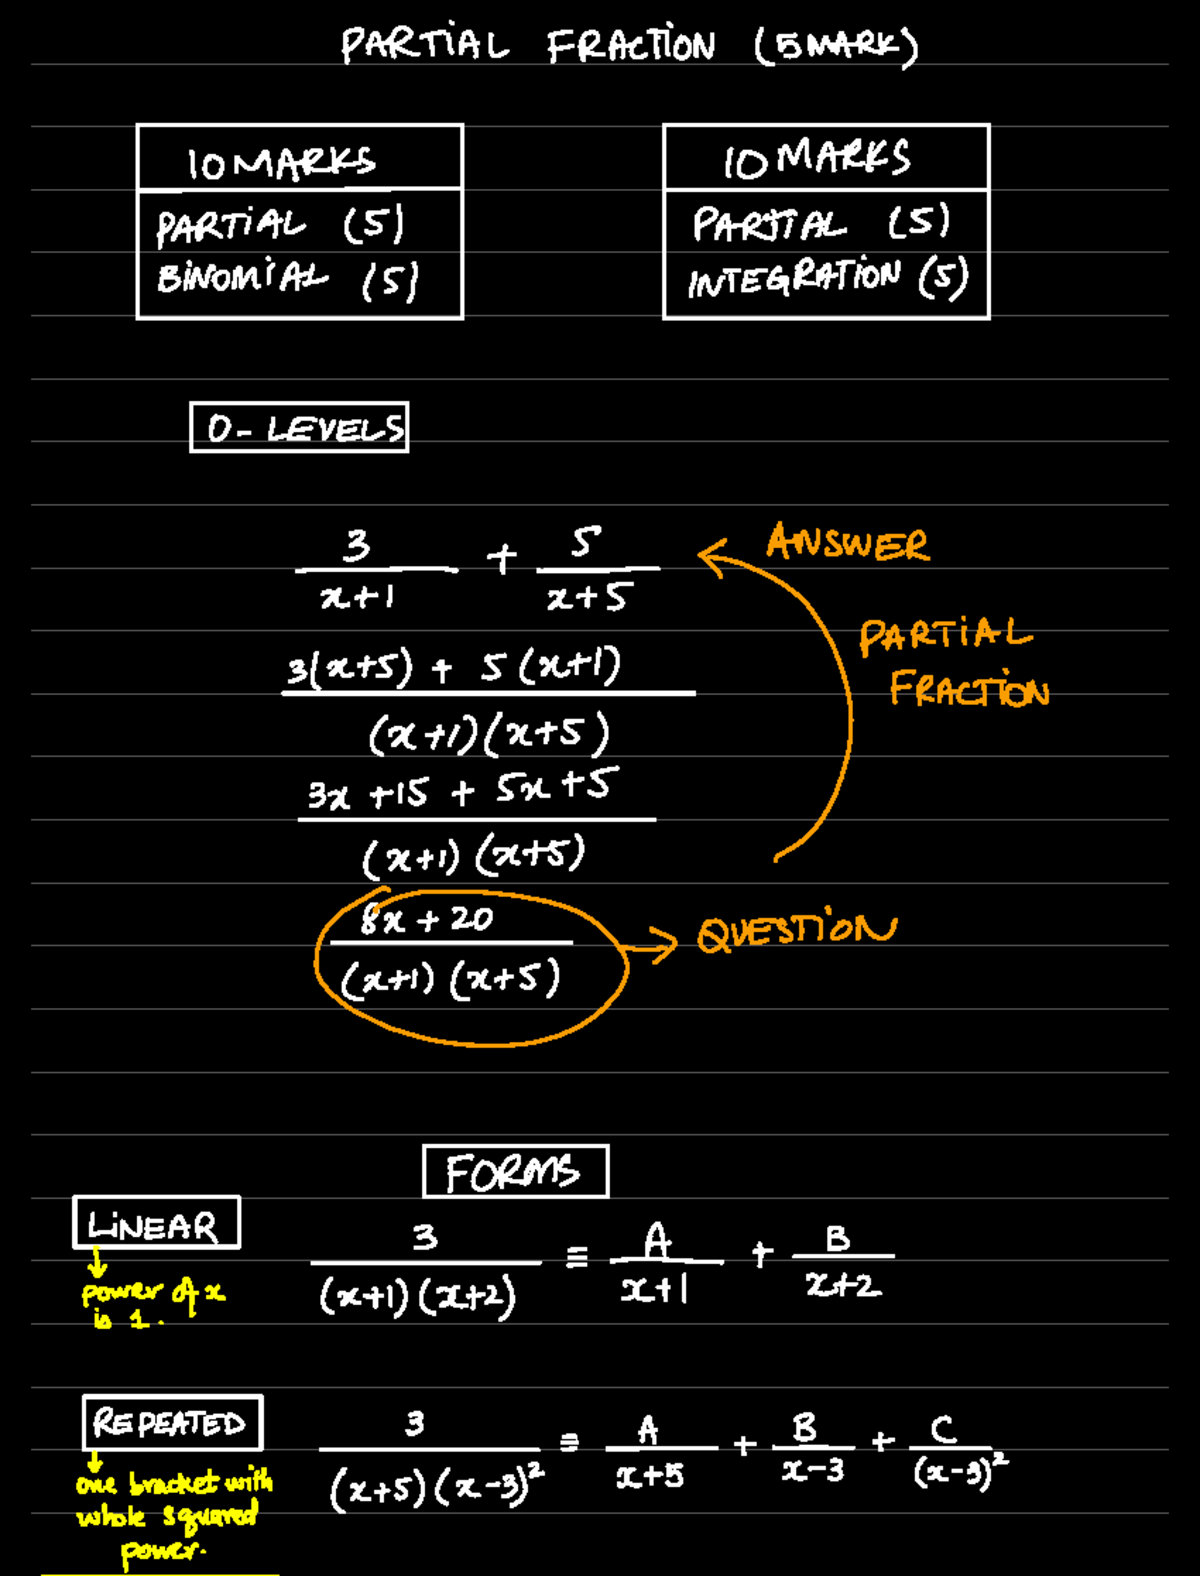 PARTiAL FRACTiON (5 MARK)
10 MARKS
PARTiAL (5)
BiNOMiAL (5)
10 MARKS
PARTiAL (5)
INTEGRATiON (5)
O- LEVELS
3/(x+1) + 5/(x+5)
ANSWER
PARTiAL
FRACTiON
(3(x+5) + 5(x+1))/((x+1)(x+5))
(3x +15 + 5x +5)/((x+1)(x+5))
(8x + 20)/((x+1)(x+5))
QUESTiON
FORMS
LiNEAR
power of x
is 1.
3/((x+1)(x+2)) ≡ A/(x+1) + B/(x+2)
REPEATED
one bracket with
whole squared
power.
3/((x+5)(x-3)²) ≡ A/(x+5) + B/(x-3) + C/(x-3)²